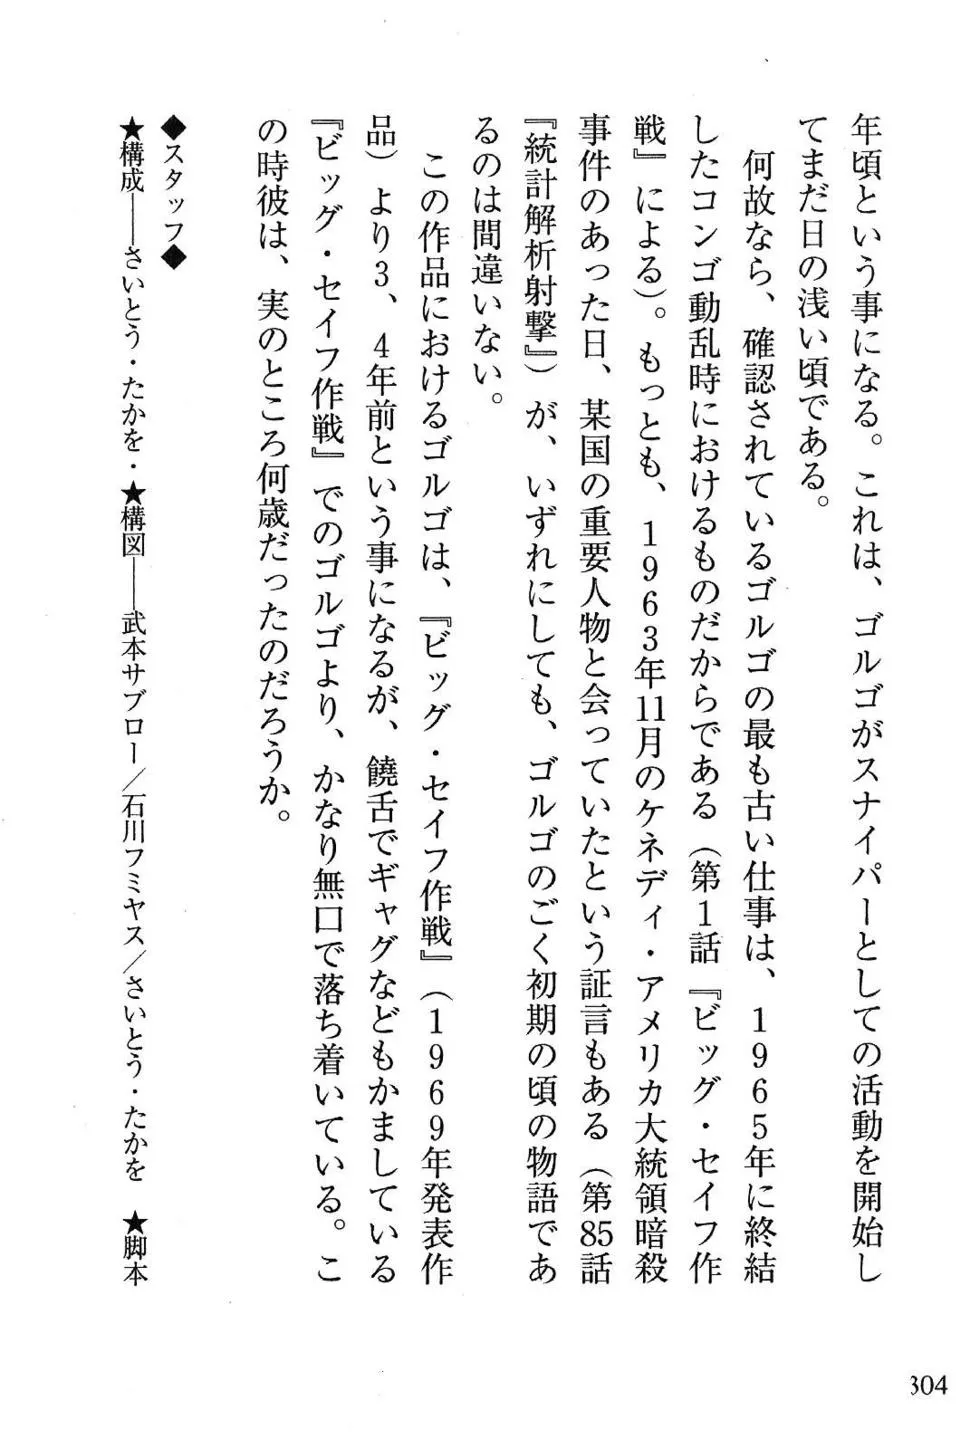 年頃という事になる。これは、ゴルゴがスナイパーとしての活動を開始し
てまだ日の浅い頃である。
何故なら、確認されているゴルゴの最も古い仕事は、1965年に終結
したコンゴ動乱時におけるものだからである（第1話『ビッグ・セイフ作
戦』による）。もっとも、1963年11月のケネディ・アメリカ大統領暗殺
事件のあった日、某国の重要人物と会っていたという証言もある（第85話
『統計解析射撃』）が、いずれにしても、ゴルゴのごく初期の頃の物語であ
るのは間違いない。
この作品におけるゴルゴは、『ビッグ・セイフ作戦』（1969年発表作
品）より3、4年前という事になるが、饒舌でギャグなどもかましている
『ビッグ・セイフ作戦』でのゴルゴより、かなり無口で落ち着いている。こ
の時彼は、実のところ何歳だったのだろうか。
◆スタッフ◆
★構成――さいとう・たかを・★構図――武本サブロー／石川フミヤス／さいとう・たかを　★脚本
304